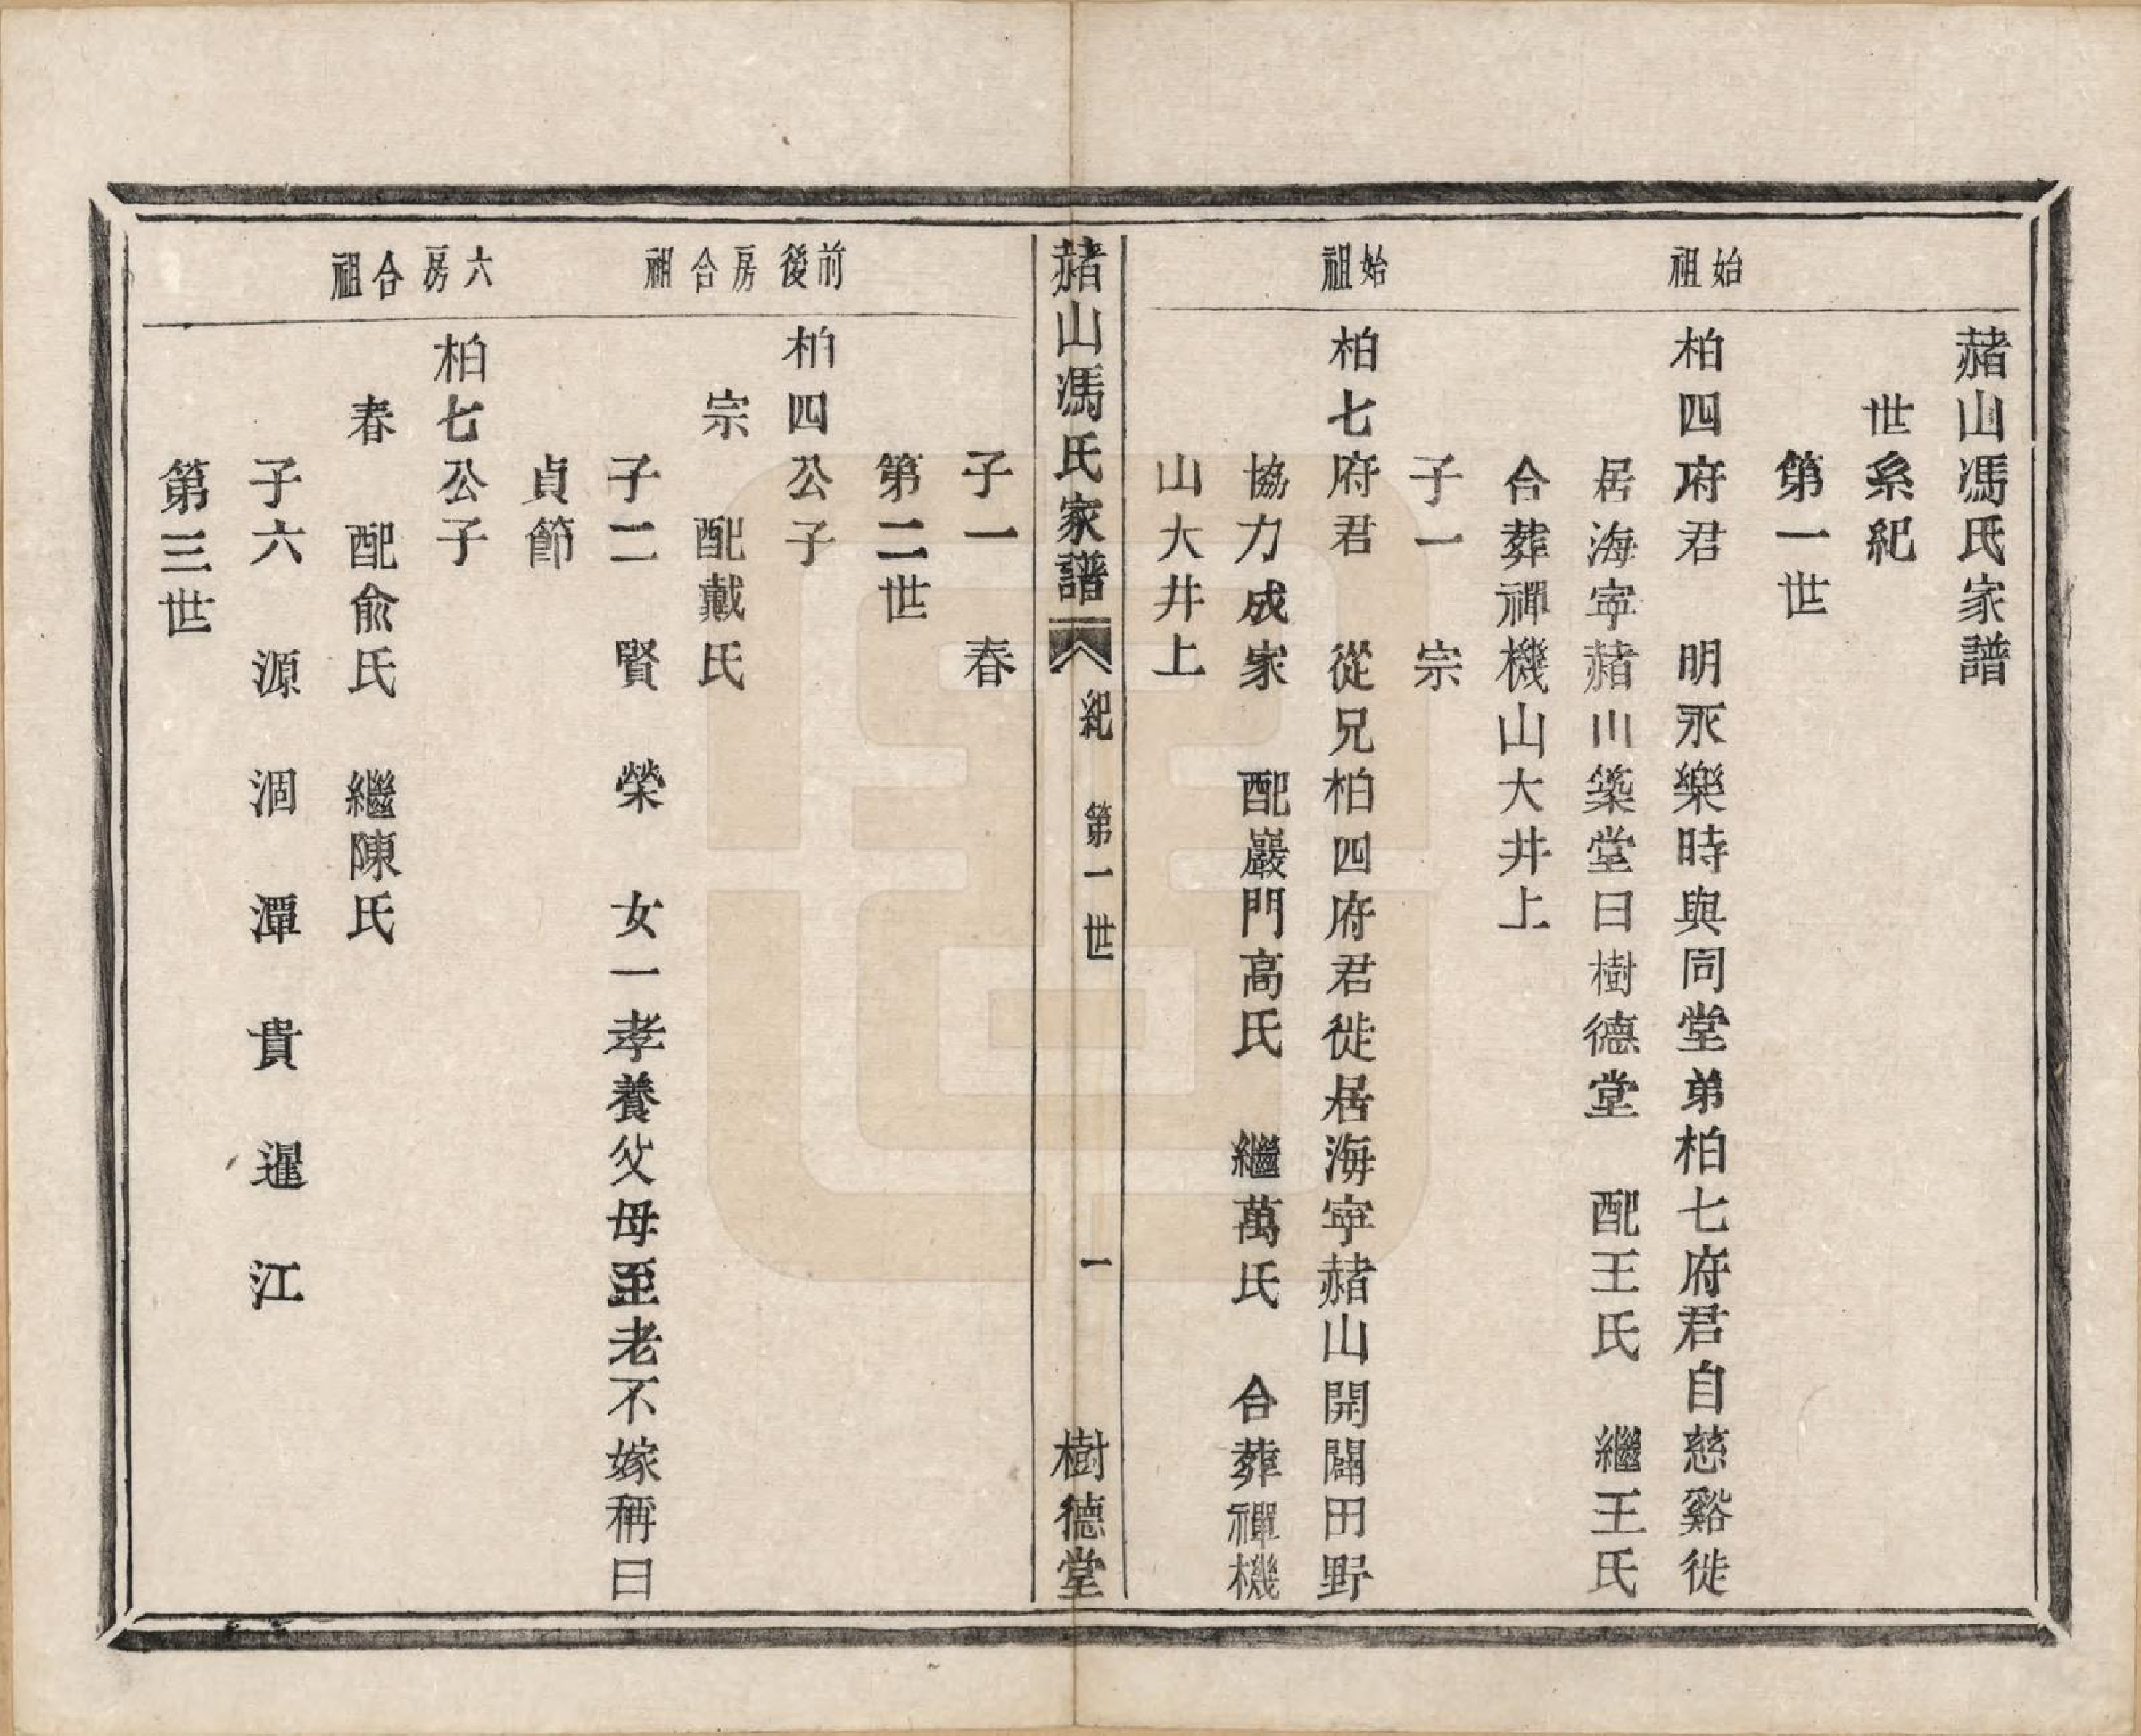 赭山馮氏家譜
世系紀
第一世
始祖
柏四府君　明永樂時與同堂弟柏七府君自慈谿徙
居海寧赭山築堂曰樹德堂　配王氏　繼王氏
合葬禪機山大井上
子一　宗
始祖
柏七府君　從兄柏四府君徙居海寧赭山開闢田野
協力成家　配巖門高氏　繼萬氏　合葬禪機
山大井上
赭山馮氏家譜　紀　第一世　一　樹德堂
子一　春
第二世
前後房合祖
柏四公子
宗　配戴氏
子二　賢　榮　女一孝養父母至老不嫁稱曰
貞節
六房合祖
柏七公子
春　配俞氏　繼陳氏
子六　源　涸　潭　貴　暹　江
第三世